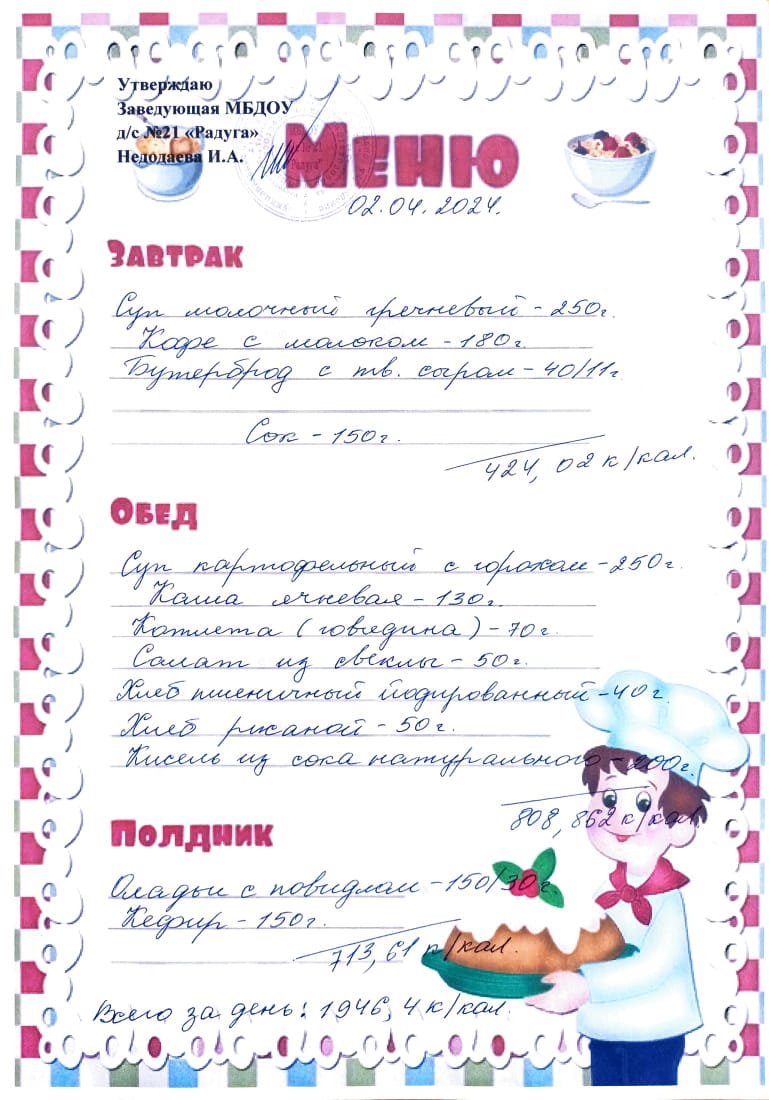 Утверждаю
Заведующая МБДОУ
д/с №21 «Радуга»
Недодаева И.А.
Меню
02.04.2024.
Завтрак
Суп молочный гречневый - 250г.
Кофе с молоком - 180г.
Бутерброд с тв. сыром - 40/11г
Сок - 150г.
424,02 к/кал.
Обед
Суп картофельный с горохом - 250г.
Каша ячневая - 130г.
Котлета (говядина) - 70г.
Салат из свеклы - 50г.
Хлеб пшеничный йодированный - 40г.
Хлеб ржаной - 50г.
Кисель из сока натурального - 200г.
808,862 к/кал.
Полдник
Оладьи с повидлом - 150/30г.
Кефир - 150г.
713,61 к/кал.
Всего за день: 1946,4 к/кал.